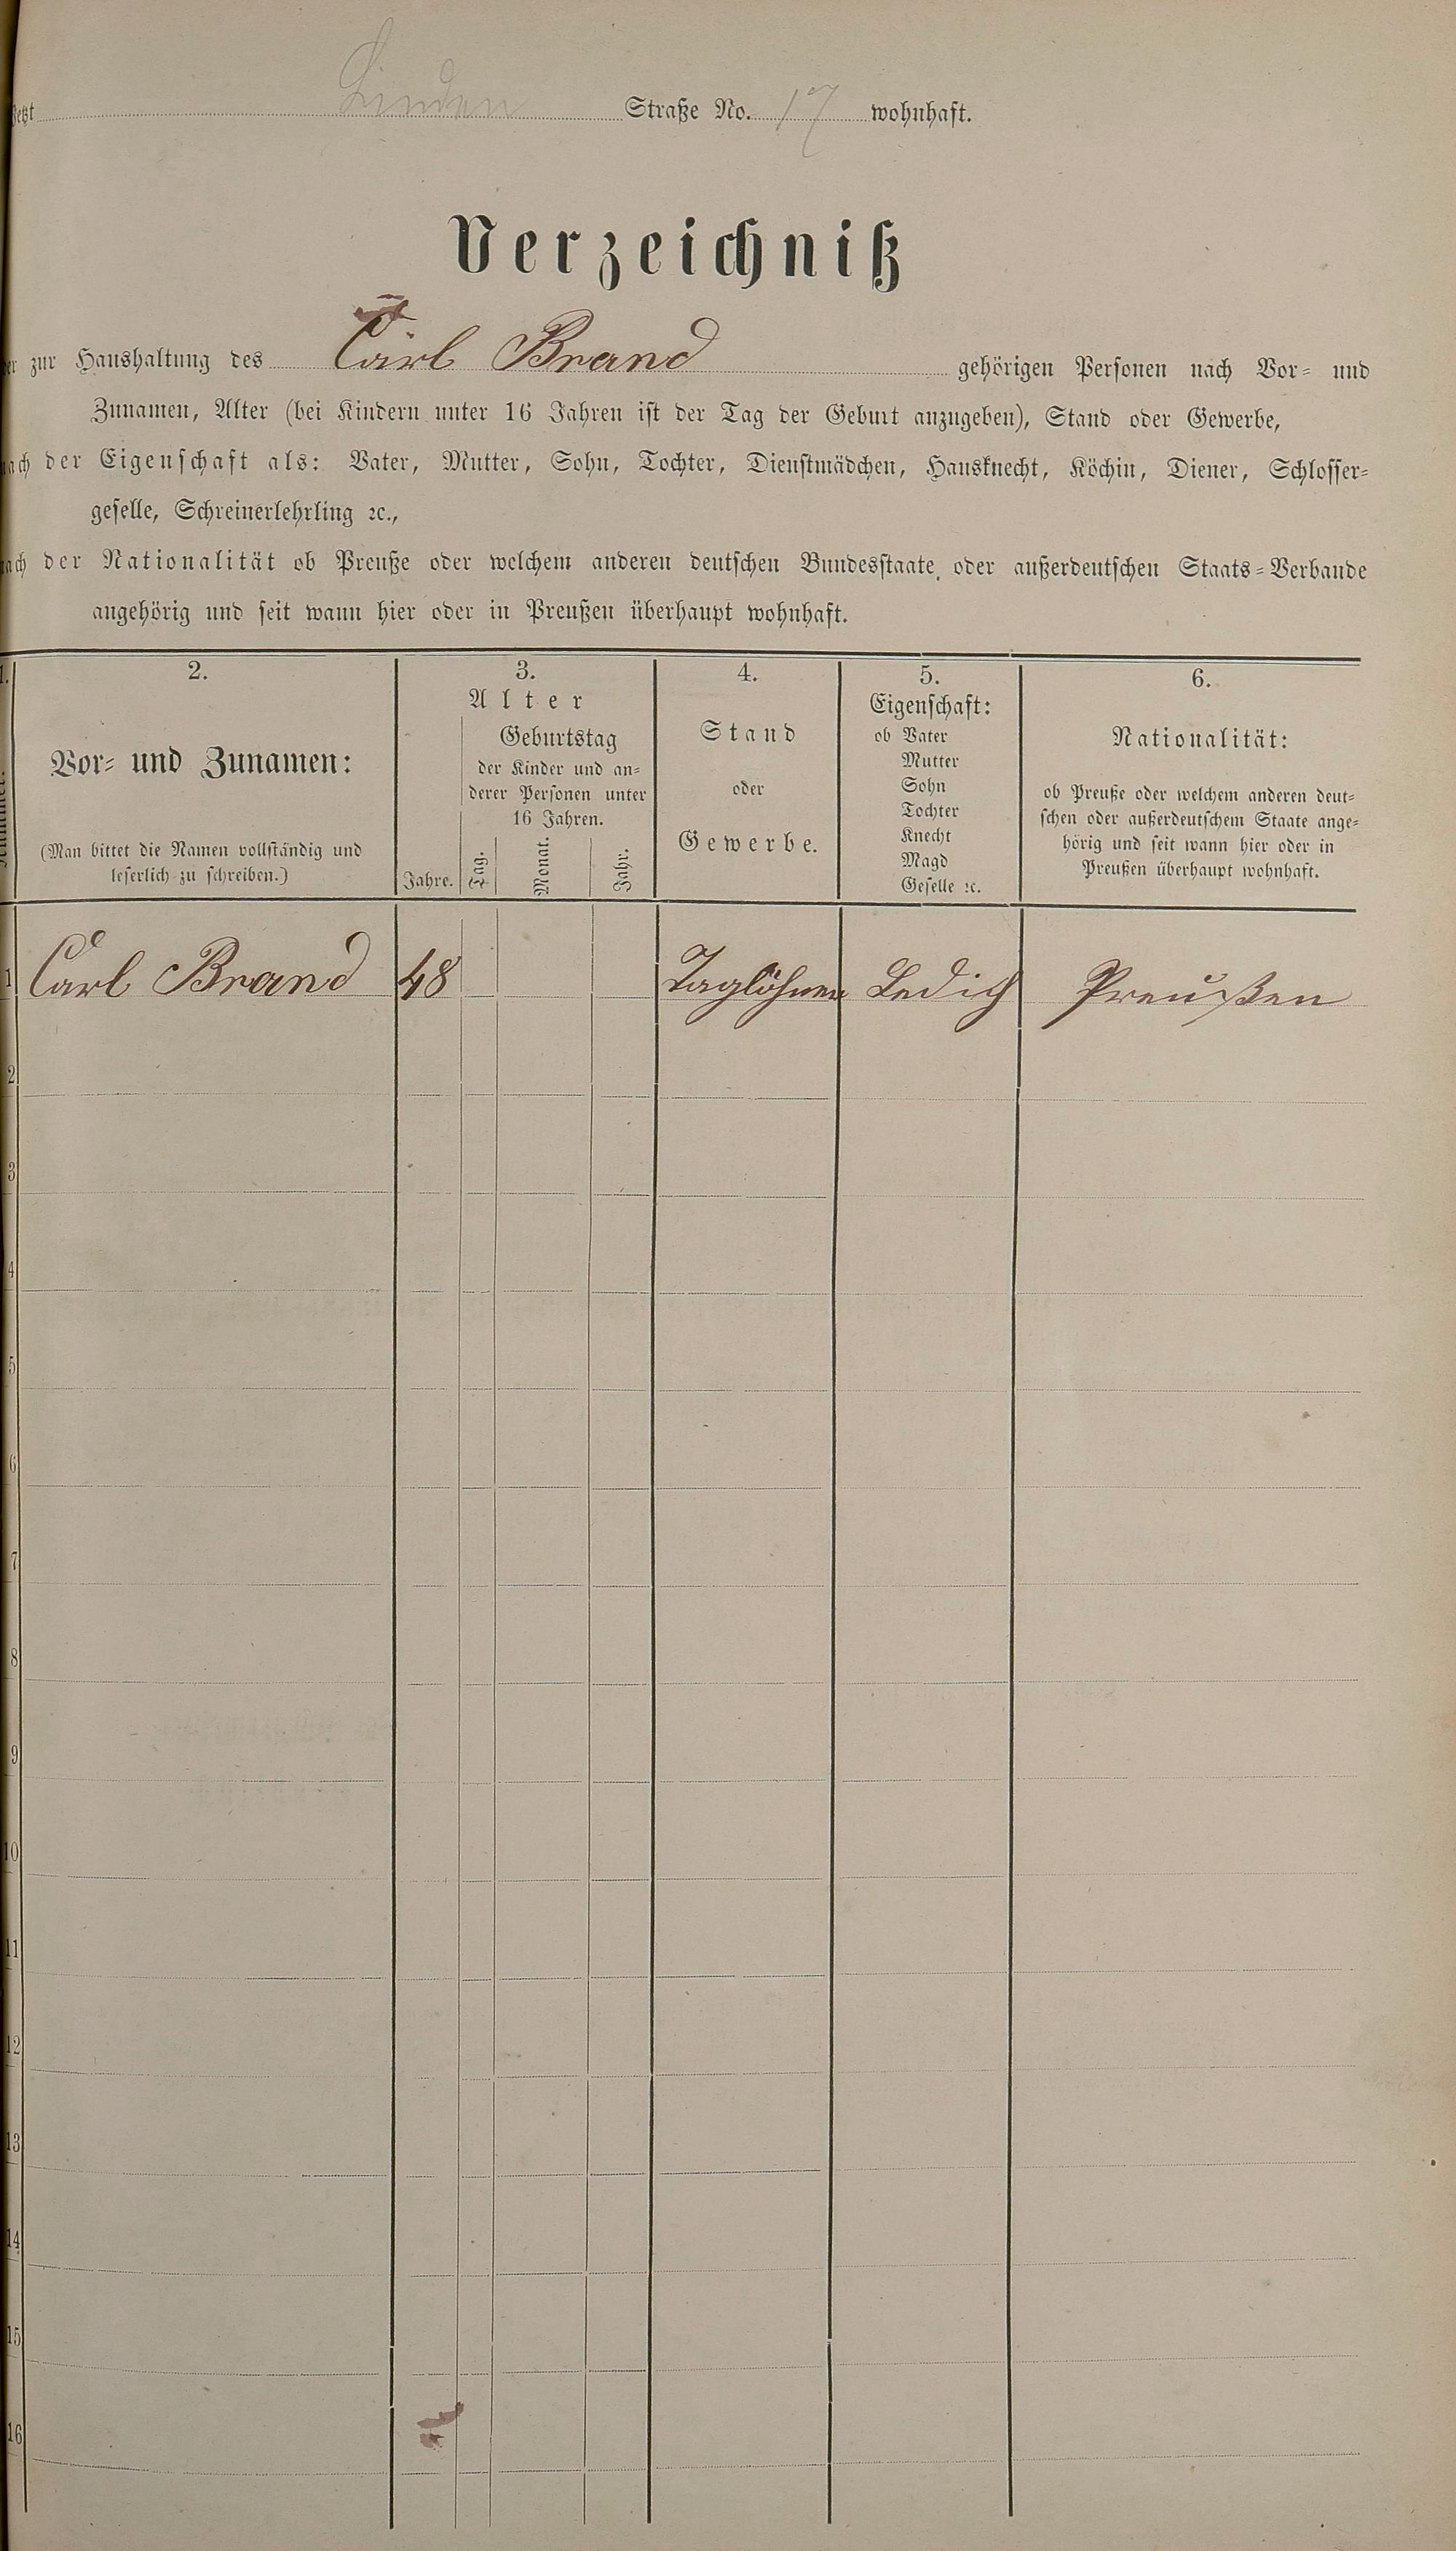 Jetzt Linden Straße No. 17 wohnhaft.
Verzeichniß
der zur Haushaltung des Carl Brand gehörigen Personen nach Vor- und
Zunamen, Alter (bei Kindern unter 16 Jahren ist der Tag der Geburt anzugeben), Stand oder Gewerbe,
nach der Eigenschaft als: Vater, Mutter, Sohn, Tochter, Dienstmädchen, Hausknecht, Köchin, Diener, Schlosser-
geselle, Schreinerlehrling ꝛc.,
nach der Nationalität ob Preuße oder welchem anderen deutschen Bundesstaate, oder außerdeutschen Staats-Verbande
angehörig und seit wann hier oder in Preußen überhaupt wohnhaft.
1.
Nummer.
2.
Vor- und Zunamen:
(Man bittet die Namen vollständig und
leserlich zu schreiben.)
3.
Alter
Geburtstag
der Kinder und an-
derer Personen unter
16 Jahren.
Jahre. Tag. Monat. Jahr.
4.
Stand
oder
Gewerbe.
5.
Eigenschaft:
ob Vater
Mutter
Sohn
Tochter
Knecht
Magd
Geselle ꝛc.
6.
Nationalität:
ob Preuße oder welchem anderen deut-
schen oder außerdeutschem Staate ange-
hörig und seit wann hier oder in
Preußen überhaupt wohnhaft.
1 Carl Brand 48 Taglöhner Ledig Preußen
2
3
4
5
6
7
8
9
10
11
12
13
14
15
16